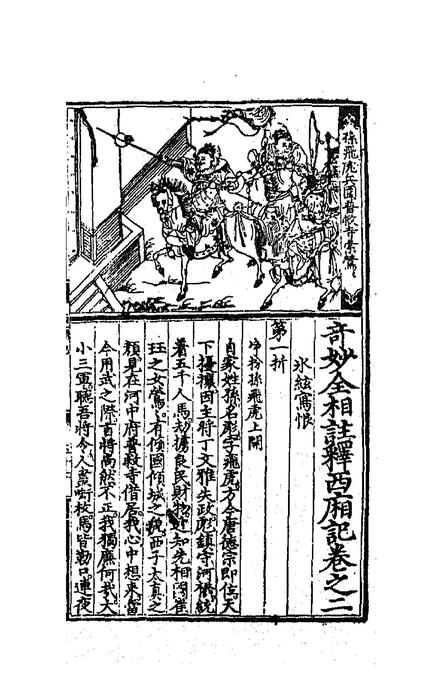 孫飛虎兵圍普救寺索鶯〻
奇妙全相註釋西廂記卷之二
氷絃寫恨
第一折
淨扮孫飛虎上開
自家姓孫名彪字飛虎方今唐德宗即位天
下擾攘因主將丁文雅失政彪鎮守河橋統
着五千人馬劫擄良民財物近知先相國崔
珏之女鶯〻有傾國傾城之貌西子太真之
顏見在河中府普救寺借居我心中想來當
今用武之際首將尚然不正我獨廉何哉大
小三軍聽吾將令人盡啣枚馬皆勒口連夜